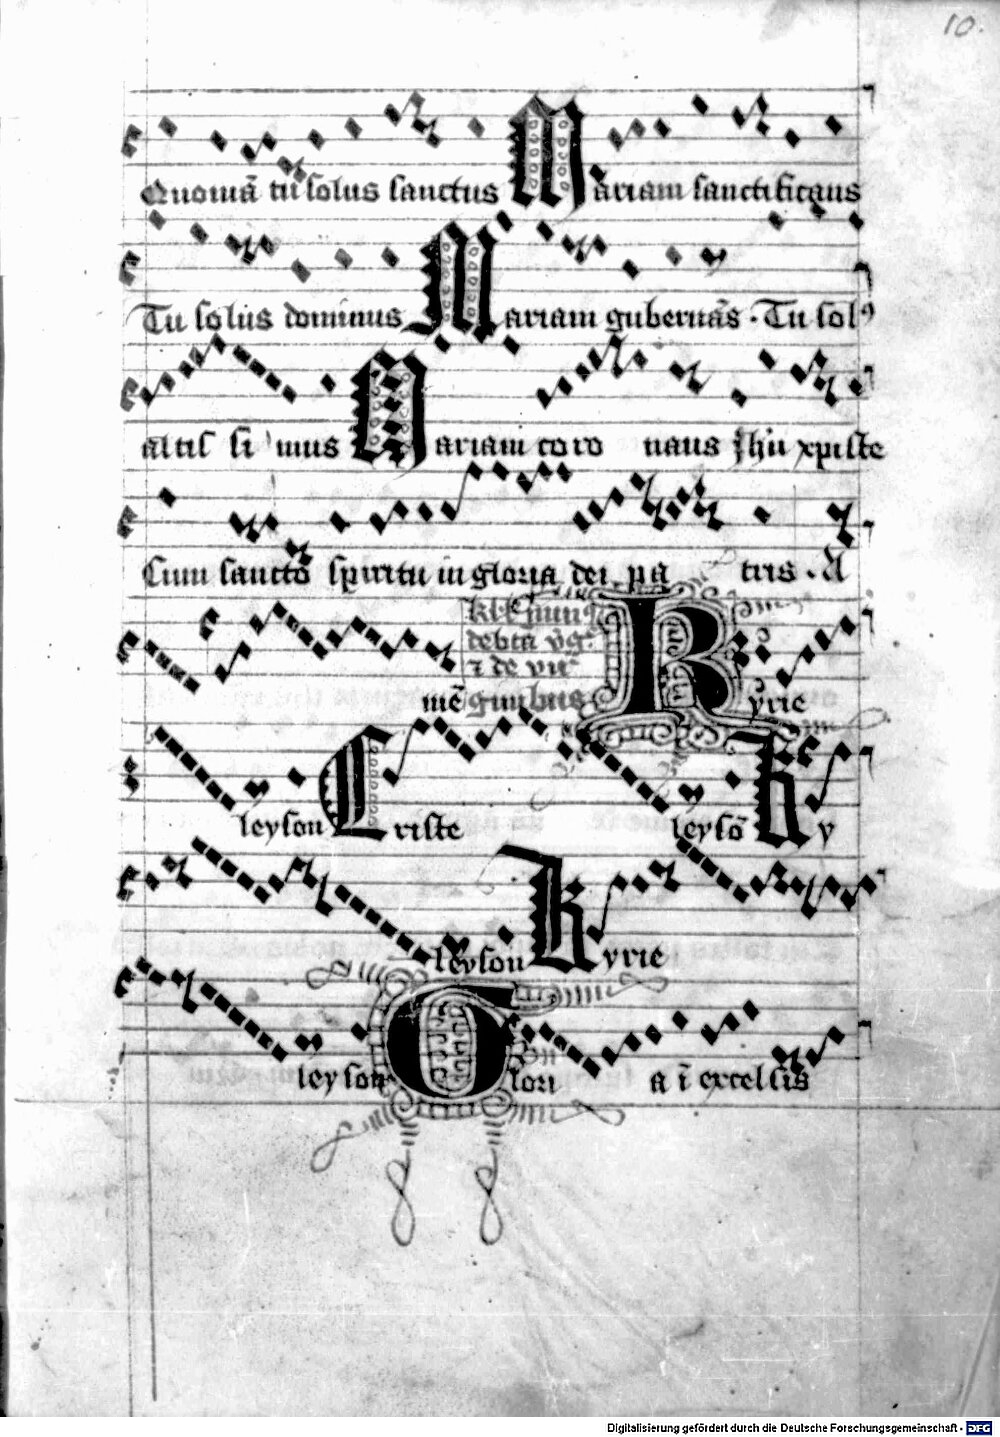 10.
Quoniā tu solus sanctus Mariam sanctificans
Tu solus dominus Mariam gubernās . Tu solꝰ
altis si mus Mariam coro nans Jhu xpiste
Cum sancto spiritu in gloria dei pa tris . A
mē
de bta vg̃.
⁊ de vir
ginibus Kyrie
leyson Criste leysō Ky
leyson Kyrie
leyson Glori a ī excelsis
Digitalisierung gefördert durch die Deutsche Forschungsgemeinschaft - DFG